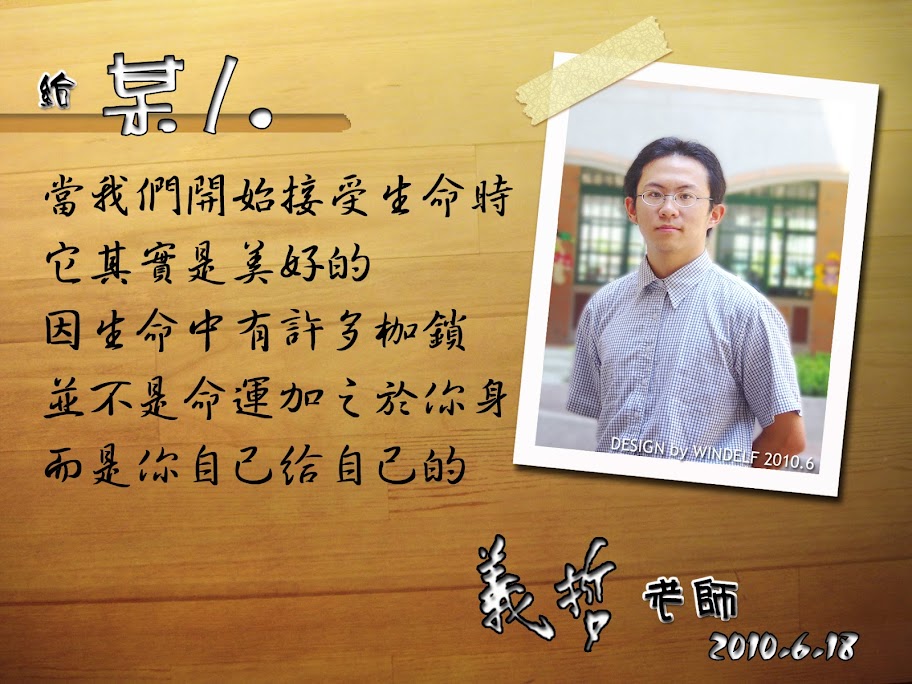 給 某人.
當我們開始接受生命時
它其實是美好的
因生命中有許多枷鎖
並不是命運加之於你身
而是你自己給自己的
DESIGN by WINDELF 2010.6
義哲 老師
2010.6.18